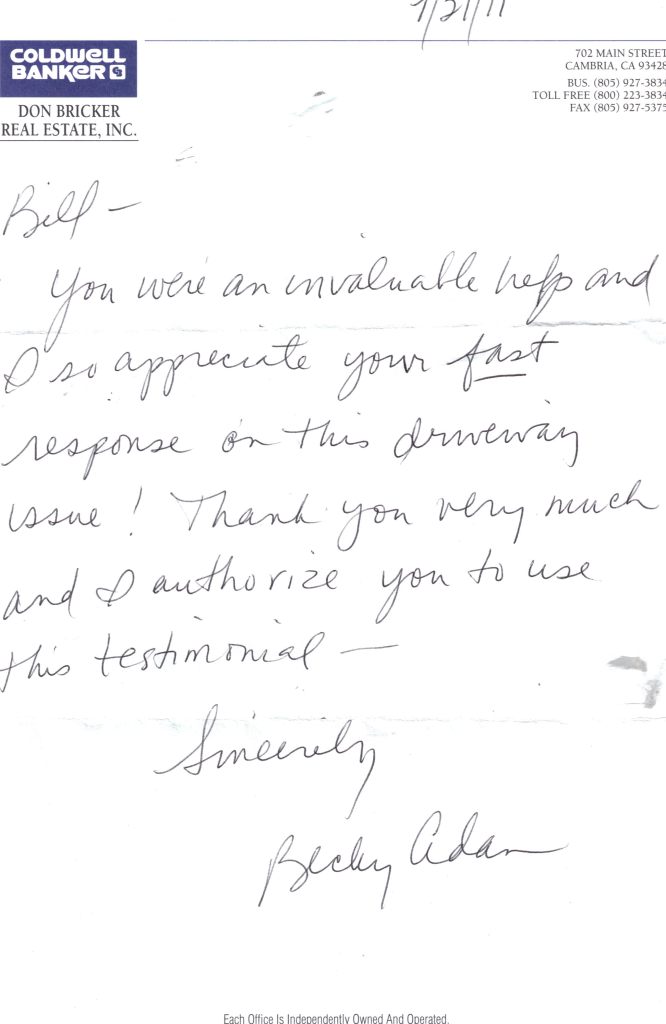 COLDWELL
BANKER
DON BRICKER
REAL ESTATE, INC.
702 MAIN STREET
CAMBRIA, CA 93428
BUS. (805) 927-3834
TOLL FREE (800) 223-3834
FAX (805) 927-5375
Bill -
You were an invaluable help and
I so appreciate your fast
response on this driveway
issue! Thank you very much
and I authorize you to use
this testimonial —
Sincerely
Becky Adam
Each Office Is Independently Owned And Operated.